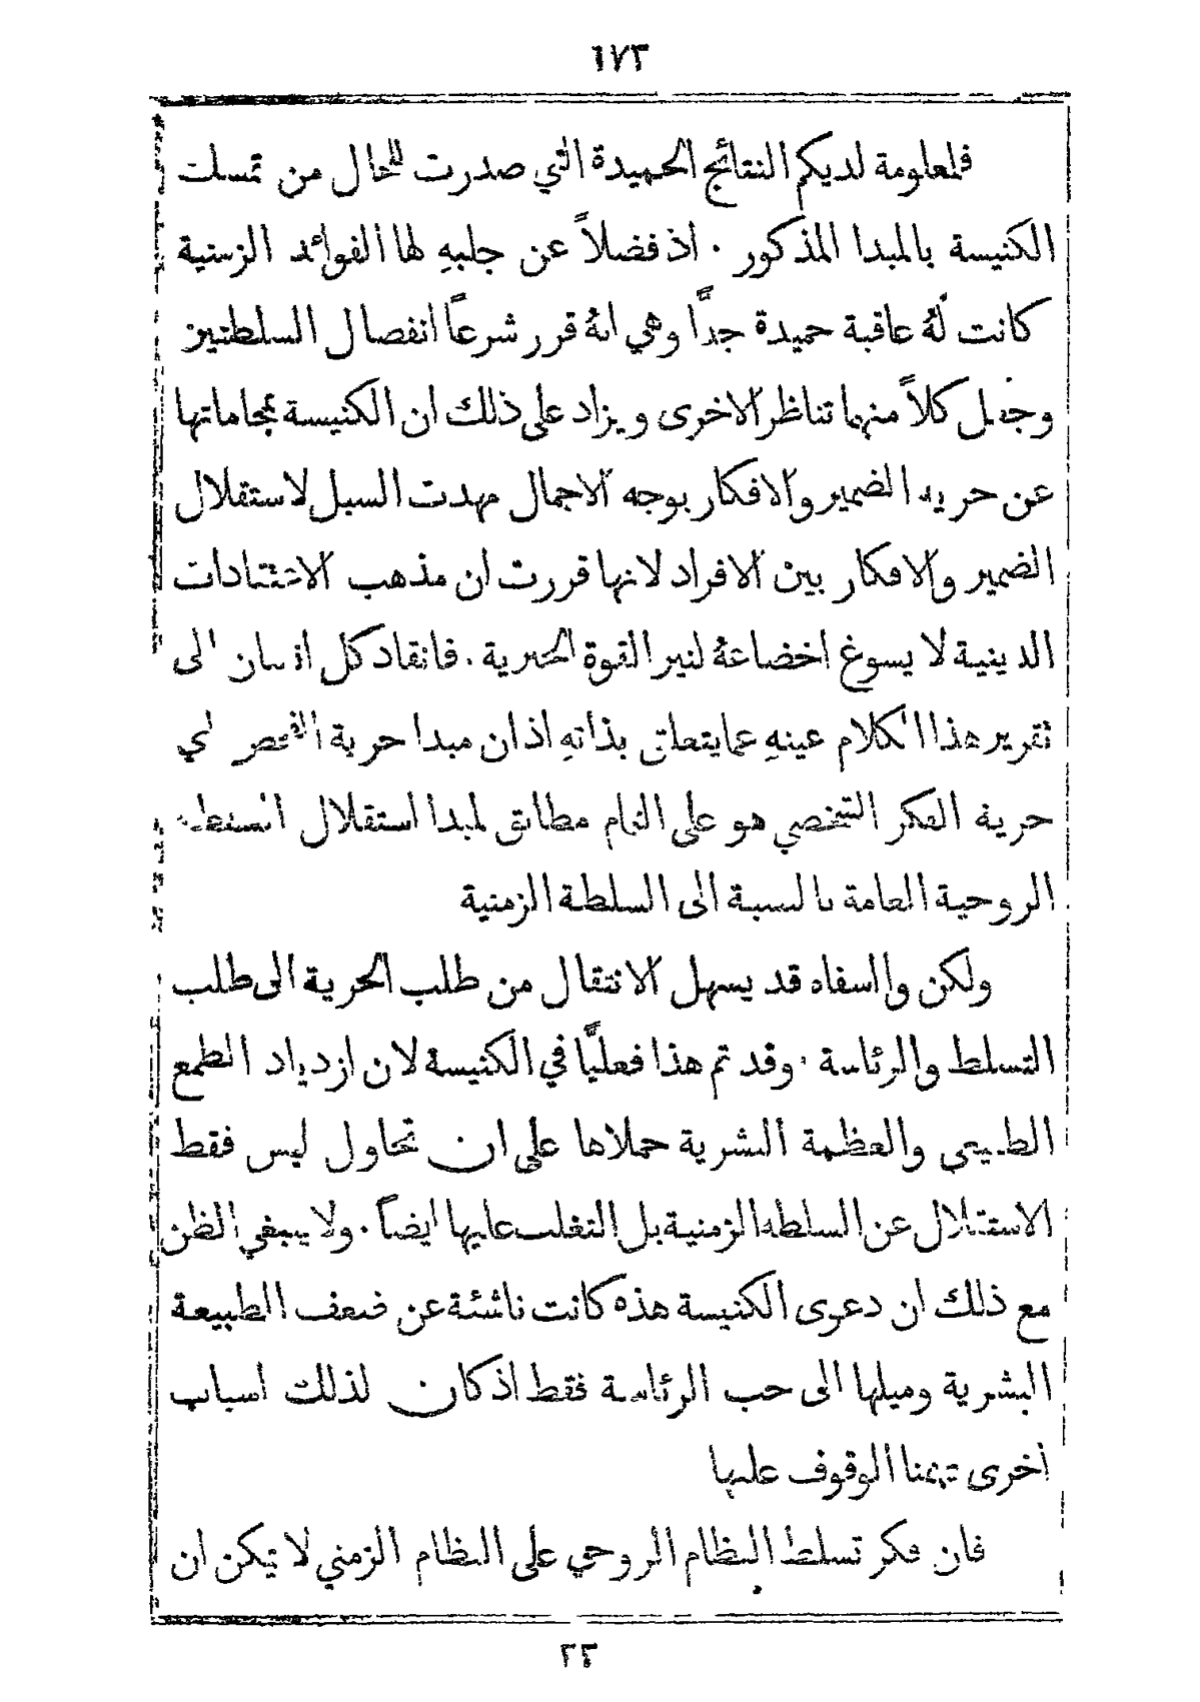 ١٧٣
فمعلومة لديكم النتائج الحميدة التي صدرت للحال من تمسك
الكنيسة بالمبدا المذكور . اذ فضلاً عن جلبهِ لها الفوائد الزمنية
كانت لهُ عاقبة حميدة جدًّا وهي انهُ قرر شرعاً انفصال السلطتين
وجعل كلاًّ منهما تناظر الاخرى ويزاد على ذلك ان الكنيسة بمحاماتها
عن حرية الضمير والافكار بوجه الاجمال مهدت السبل لاستقلال
الضمير والافكار بين الافراد لانها قررت ان مذهب الاعتقادات
الدينية لا يسوغ اخضاعهُ لنير القوة الجبرية . فانقاد كل انسان الى
تقرير هذا الكلام عينهِ عما يتعلق بذاتهِ اذ ان مبدا حرية الفحص اي
حرية الفكر الشخصي هو على التمام مطابق لمبدا استقلال السلطة
الروحية العامة بالنسبة الى السلطة الزمنية
ولكن وااسفاه قد يسهل الانتقال من طلب الحرية الى طلب
التسلط والرئاسة . وقد تم هذا فعليًّا في الكنيسة لان ازدياد الطمع
الطبيعي والعظمة البشرية حملاها على ان تحاول ليس فقط
الاستقلال عن السلطه الزمنية بل التغلب عليها ايضاً . ولا ينبغي الظن
مع ذلك ان دعوى الكنيسة هذه كانت ناشئة عن ضعف الطبيعة
البشرية وميلها الى حب الرئاسة فقط اذ كان لذلك اسباب
اخرى يهمنا الوقوف عليها
فان فكر تسلط النظام الروحي على النظام الزمني لا يمكن ان
٢٣